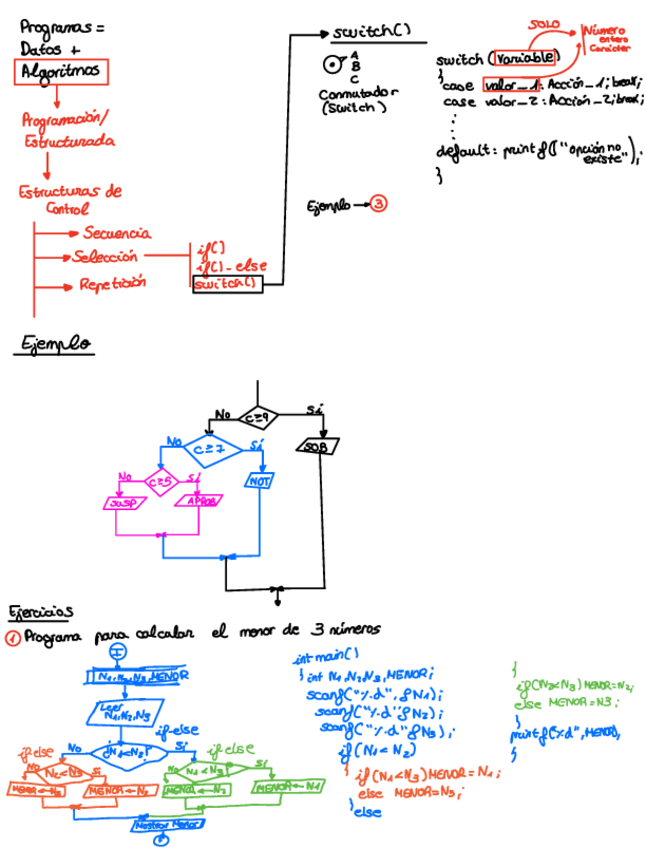 Programas =
Datos +
Algoritmos
Programación/
Estructurada
Estructuras de
Control
Secuencia
Selección
Repetición
if()
if()-else
switch()
switch()
A
B
C
Conmutador
(Switch)
Ejemplo → 3
SOLO
Número
entero
Carácter
switch (Variable)
{
case valor_1: Acción_1; break;
case valor_2: Acción_2; break;
default: printf("opción no
existe");
}
Ejemplo
No
C≥9
Sí
SOB
No
C≥7
Sí
NOT
No
C≥5
Sí
SUSP
APROB
Ejercicios
1 Programa para calcular el menor de 3 números
I
N1, N2, N3, MENOR
Leer
N1, N2, N3
if-else
No
¿N1<N2?
Sí
if else
No
N2<N3
Sí
MENOR←N3
MENOR←N2
if else
N1<N3
Sí
MENOR←N1
Mostrar Menor
F
int main()
{ int N1, N2, N3, MENOR;
scanf("%d", &N1);
scanf("%d" &N2);
scanf("%d" &N3);
if (N1<N2)
{ if (N1<N3) MENOR = N1;
else MENOR=N3;
}else
{
if(N2<N3) MENOR=N2;
else MENOR=N3;
}
printf("%d", MENOR);
}